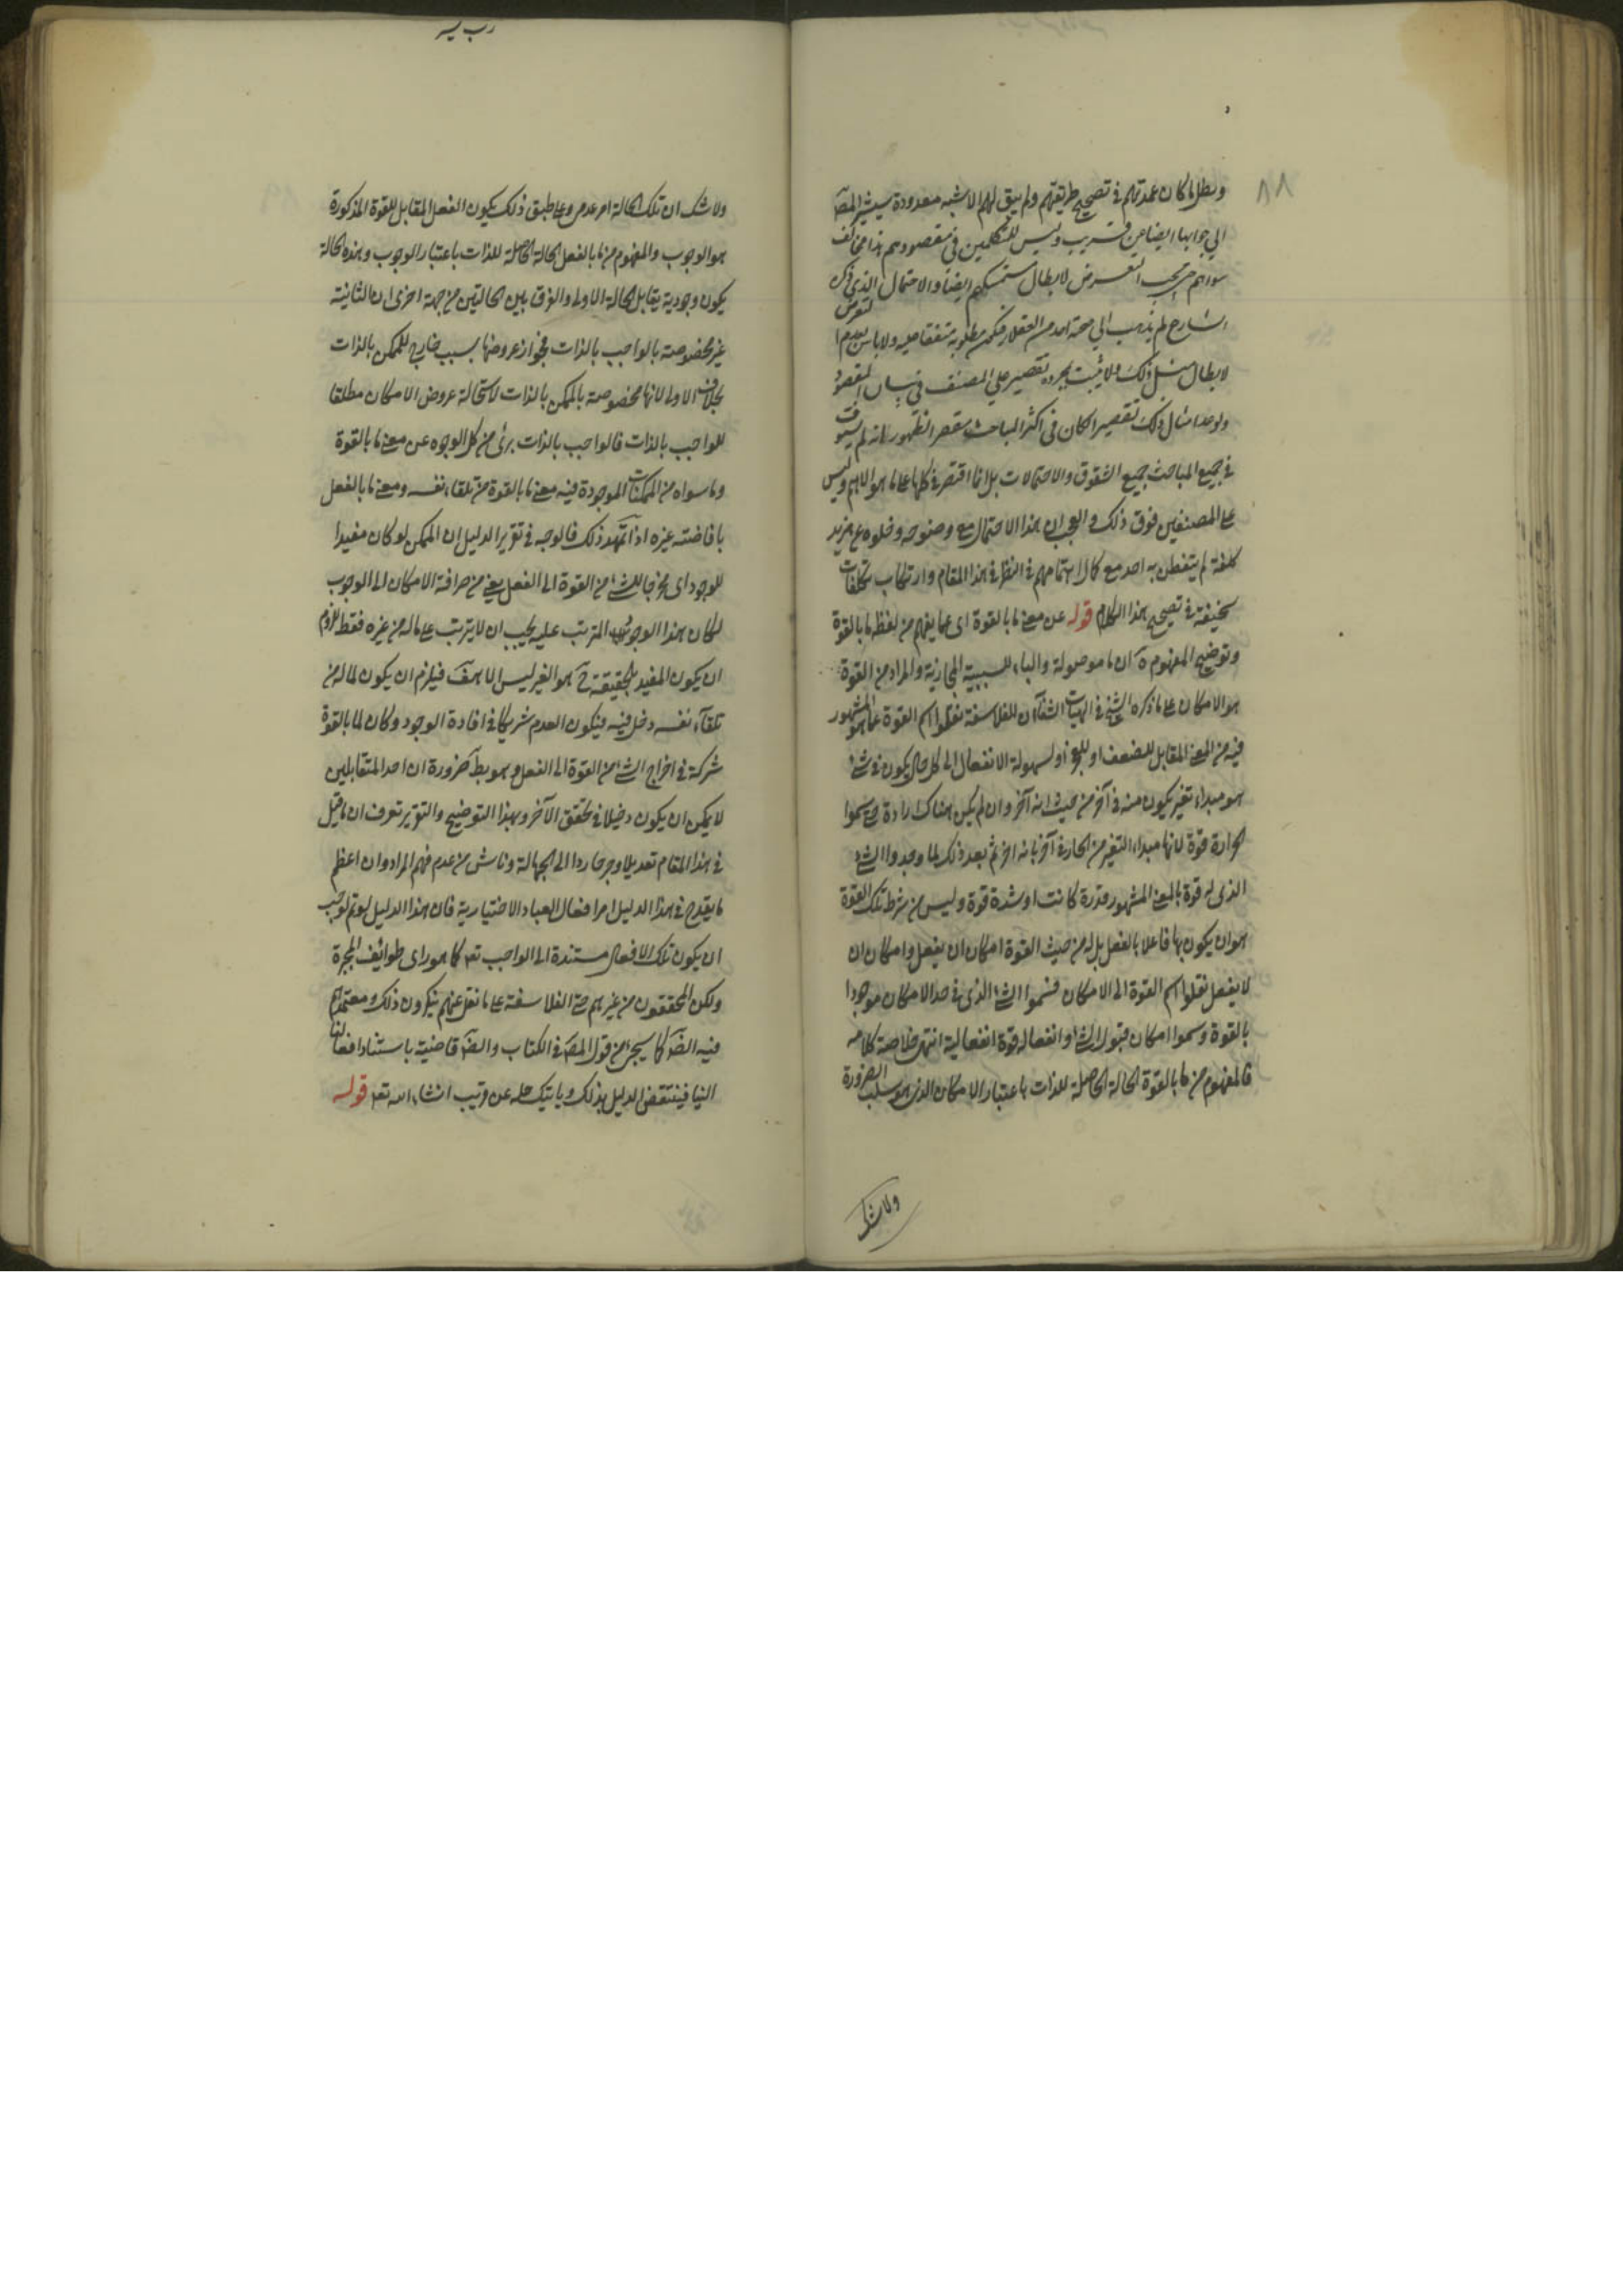 ٨٨
وبطل ما كان عمدتهم في تصحيح طريقتهم ولم يبق لهم الا شبه معدودة سيشير المصـ
الي جوابها ايضا عن قريب وليس للمتكلمين في مقصودهم هذا مخالف
سواهم حتي يجب التعرض لابطال متمسكهم ايضا والاحتمال الذي ذكره
الشارح لم يذهب الي صحته احد من العقلاء فيكون مطلوبه متفقا عليه ولا باس بعدم التعرض
لابطال مثل ذلك ولا يثبت بمجرده تقصير علي المصنف في بيان المقصود
ولو عد امثال ذلك تقصيرا لكان في اكثر المباحث مقصرا لظهور انه لم يستوف
في جميع المباحث جميع الشقوق والاحتمالات بل انما اقتصر في كلها على ما هو الاهم وليس
على المصنفين فوق ذلك والعجب ان هذا الاحتمال مع وضوحه وخلوه عن مزيد
كلفة لم يتفطن به احد مع كمال اهتمامهم في النظر في هذا المقام وارتكاب تكلفات
سخيفة في تصحيح هذا الكلام قوله عن معنى ما بالقوة اى عما يفهم من لفظ ما بالقوة
وتوضيح المفهوم ان ما موصولة والباء للسببية المجازية والمراد من القوة
هو الامكان على ما ذكره الشيخ في الهيات الشفاء ان الفلاسفة نقلوا اسم القوة عما هو المشهور
فيه من المعنى المقابل للضعف او للعجز او لسهولة الانفعال الى كل حال يكون في شئ
هو مبداء تغير يكون منه في آخر من حيث انه آخر وان لم يكن هناك ارادة حتى سموا
الحرارة قوة لانها مبداء التغير من الحار في آخر بانه آخر ثم بعد ذلك لما وجدوا الشئ
الذى له قوة بالمعنى المشهور قدرة كانت او شدة قوة وليس من شرط تلك القوة
هو ان يكون بها فاعلا بالفعل بل له من حيث القوة امكان ان يفعل وامكان ان
لا يفعل نقلوا اسم القوة الى الامكان فسموا الشئ الذى في حد الامكان موجودا
بالقوة وسموا امكان قبول الشئ وانفعاله قوة انفعالية انتهى خلاصة كلامه
فالمفهوم من ما بالقوة الحالة الحاصلة للذات باعتبار الامكان الذى هو سلب الضرورة
ولا شك
ولا شك ان تلك الحالة امر عدمى وعلى طبق ذلك يكون الفعل المقابل للقوة المذكورة
هو الوجوب والمفهوم من ما بالفعل الحالة الحاصلة للذات باعتبار الوجوب وهذه الحالة
يكون وجودية يقابل الحالة الاولى والفرق بين الحالتين من جهة اخرى ان الثانية
غير مخصوصة بالواجب بالذات لجواز عروضها بسبب خارج للممكن بالذات
بخلاف الاولى لانها مخصوصة بالممكن بالذات لاستحالة عروض الامكان مطلقا
للواجب بالذات فالواجب بالذات برئ من كل الوجوه عن معنى ما بالقوة
وما سواه من الممكنات الموجودة فيه معنى ما بالقوة من تلقاء نفسه ومعنى ما بالفعل
بافاضته غيره اذا تمهد ذلك فالوجه في تقرير الدليل ان الممكن لو كان مفيدا
للوجود اى مخرجا للشئ من القوة الى الفعل يعنى من صرافة الامكان الى الوجوب
لكان هذا الوجود المترتب عليه يجب ان لا يترتب على ما له من غيره فقط للزوم
ان يكون المفيد بالحقيقة ح هو الغير ليس الا هف فيلزم ان يكون لما له من
تلقاء نفسه دخل فيه فيكون العدم شريكا في افادة الوجود وكان لما بالقوة
شركة في اخراج الشئ من القوة الى الفعل وهو بط ضرورة ان احد المتقابلين
لا يمكن ان يكون دخيلا في تحقق الآخر وبهذا التوضيح والتقرير تعرف ان ما قيل
في هذا المقام تعديلا وجرحا ردا الى الجهالة وناش من عدم فهم المراد وان اعظم
ما يقدح في هذا الدليل امر افعال العباد الاختيارية فان هذا الدليل لو تم لوجب
ان يكون تلك الافعال مستندة الى الواجب تعه كما هو راى طوائف المجبرة
ولكن المحققون من غيرهم حتى الفلاسفة على ما نقل عنهم ينكرون ذلك ومعتمدهم
فيه الضرـ كما سيجئ من قول المصـ في الكتاب والضرـ قاضية باستناد افعالنا
الينا فينتقض الدليل بذلك وياتيك حله عن قريب انشاء الله تعه قوله